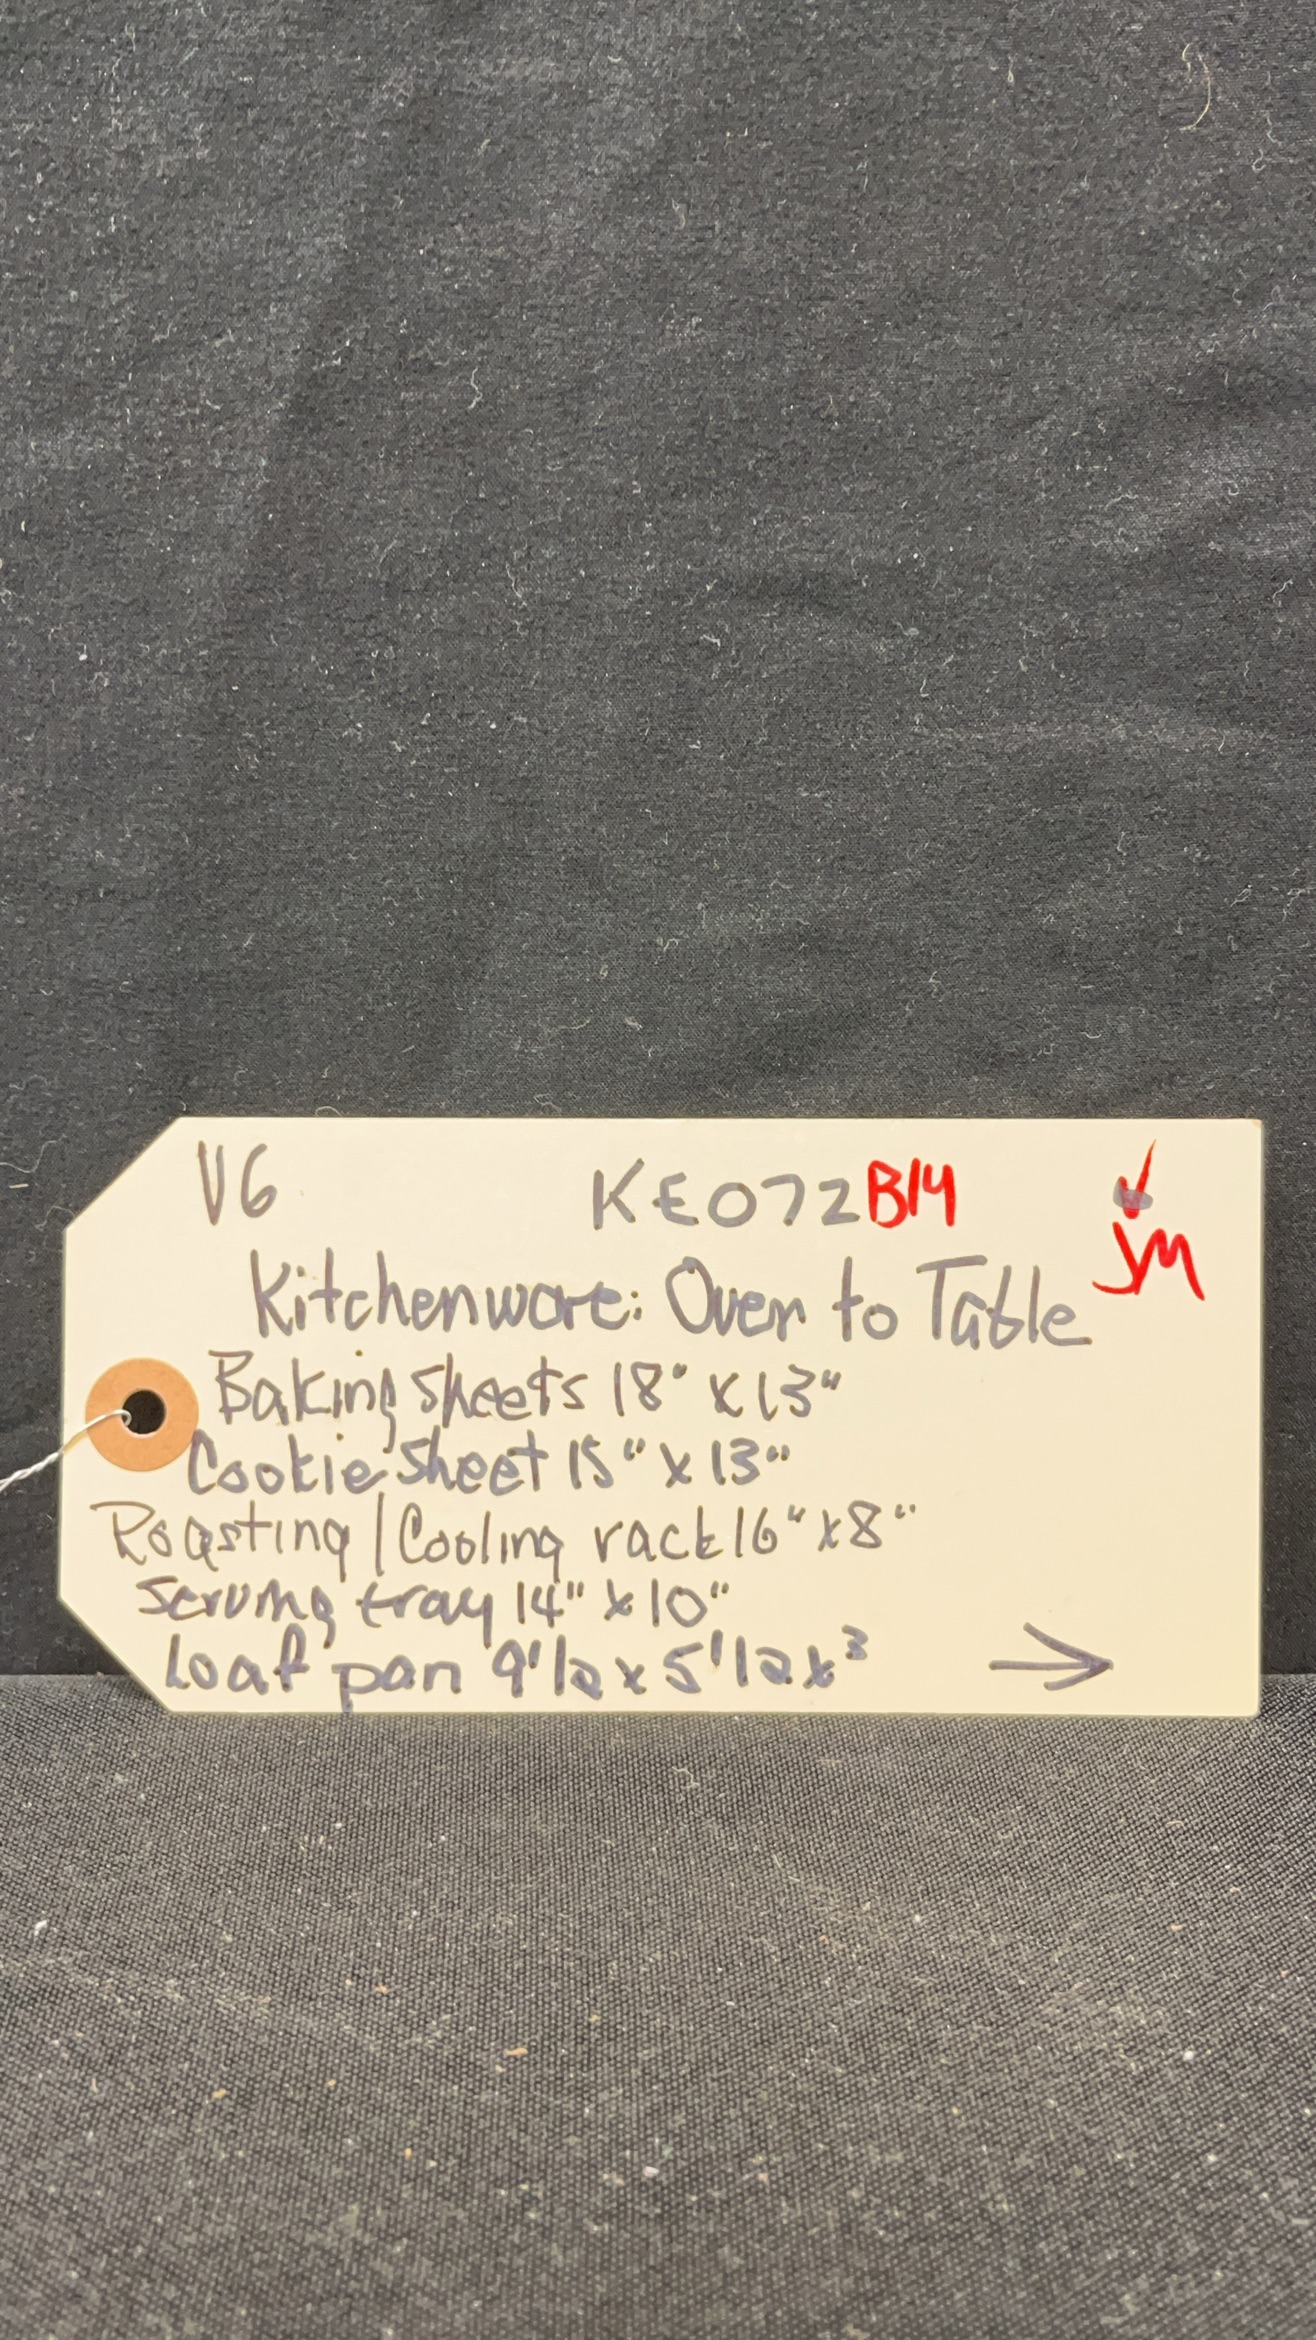 V6 KE072 B14 JM
Kitchenware: Oven to Table
Baking sheets 18" x 13"
Cookie sheet 15" x 13"
Roasting / Cooling rack 16" x 8"
serving tray 14" x 10"
Loaf pan 9 1/2 x 5 1/2 x 3